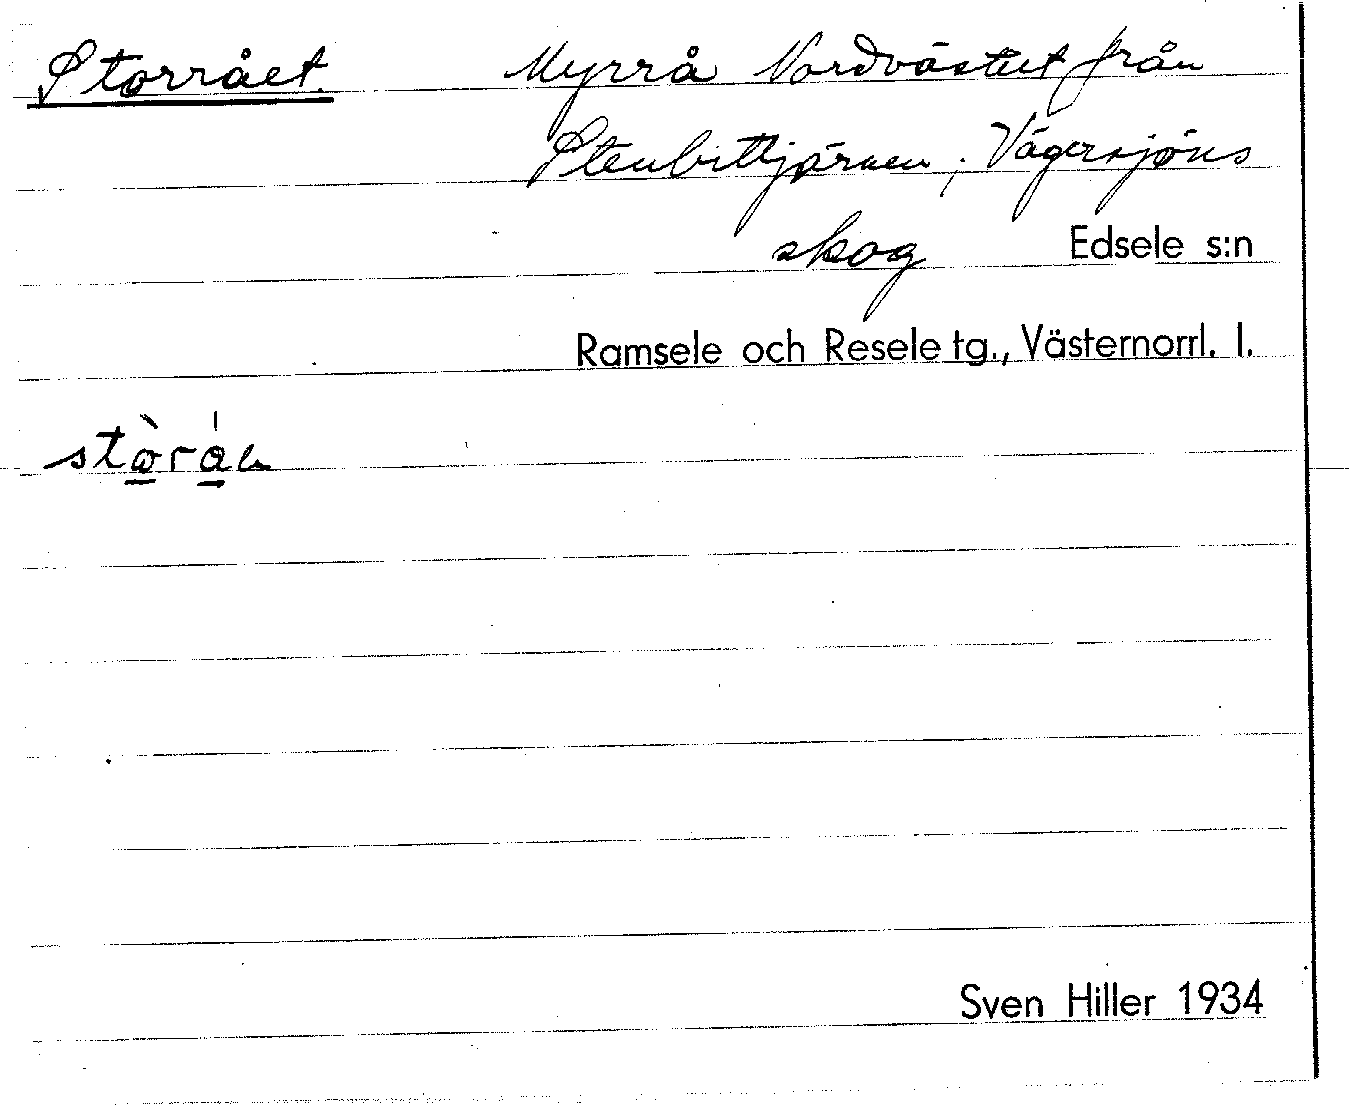 Storrået. Myrrå Nordväster från
Stenbittjärnen, Vägersjöns
skog Edsele s:n
Ramsele och Resele tg., Västernorrl. l.
Sven Hiller 1934